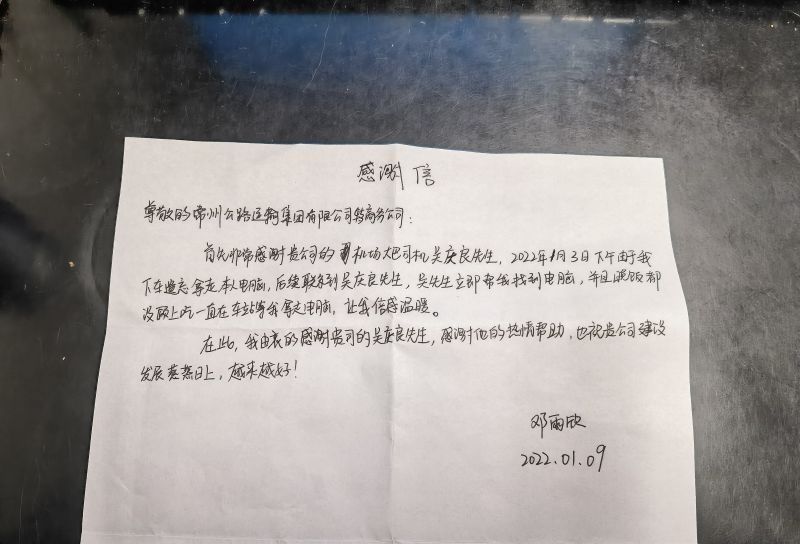 感谢信
尊敬的常州公路运输集团有限公司特商务公司：
首先非常感谢贵公司的机场大巴司机吴庆良先生，2022年1月3日下午由于我
下车遗忘拿走本人电脑，后续联系到吴庆良先生，吴先生立即帮我找到电脑，并且晚饭都
没顾上吃一直在车站等我拿走电脑，让我倍感温暖。
在此，我由衷的感谢贵司的吴庆良先生，感谢他的热情帮助，也祝贵公司建设
发展蒸蒸日上，越来越好！
邓雨欣
2022.01.09